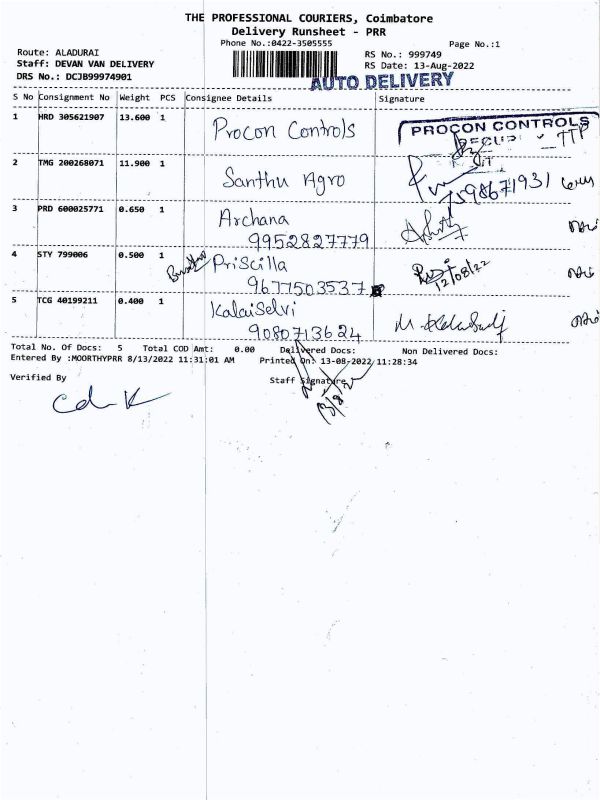 THE PROFESSIONAL COURIERS, Coimbatore
Delivery Runsheet - PRR
Phone No.:0422-3505555 Page No.:1
Route: ALADURAI RS No.: 999749
Staff: DEVAN VAN DELIVERY RS Date: 13-Aug-2022
DRS No.: DCJB99974901 AUTO DELIVERY
S No Consignment No Weight PCS Consignee Details Signature
1 HRD 305621907 13.600 1 Procon Controls PROCON CONTROLS
2 TMG 200268071 11.900 1 Santhu Agro 7598671931
3 PRD 600025771 0.650 1 Archana
9952827779
4 STY 799006 0.500 1 Priscilla
9677503537 12/08/22
5 TCG 40199211 0.400 1 Kalaiselvi
9080713624
Total No. Of Docs: 5 Total COD Amt: 0.00 Delivered Docs: Non Delivered Docs:
Entered By :MOORTHYPRR 8/13/2022 11:31:01 AM Printed On: 13-08-2022 11:28:34
Verified By Staff Signature